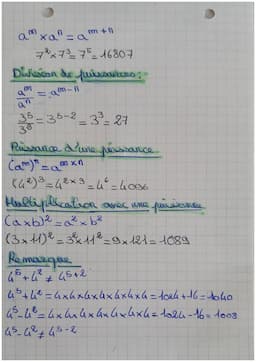 aᵐ × aⁿ = aᵐ⁺ⁿ
7² × 7³ = 7⁵ = 16807
Division de puissances :
aᵐ/aⁿ = aᵐ⁻ⁿ
3⁵/3² = 3⁵⁻² = 3³ = 27
Puissance d'une puissance
(aᵐ)ⁿ = aᵐˣⁿ
(4²)³ = 4²ˣ³ = 4⁶ = 4096
Multiplication avec une puissance
(a×b)² = a² × b²
(3×11)² = 3²×11² = 9×121 = 1089
Remarque
4⁵ + 4² ≠ 4⁵⁺²
4⁵ + 4² = 4×4×4×4×4+4×4 = 1024 + 16 = 1040
4⁵ - 4² = 4×4×4×4×4-4×4 = 1024 - 16 = 1008
4⁵ - 4² ≠ 4⁵⁻²